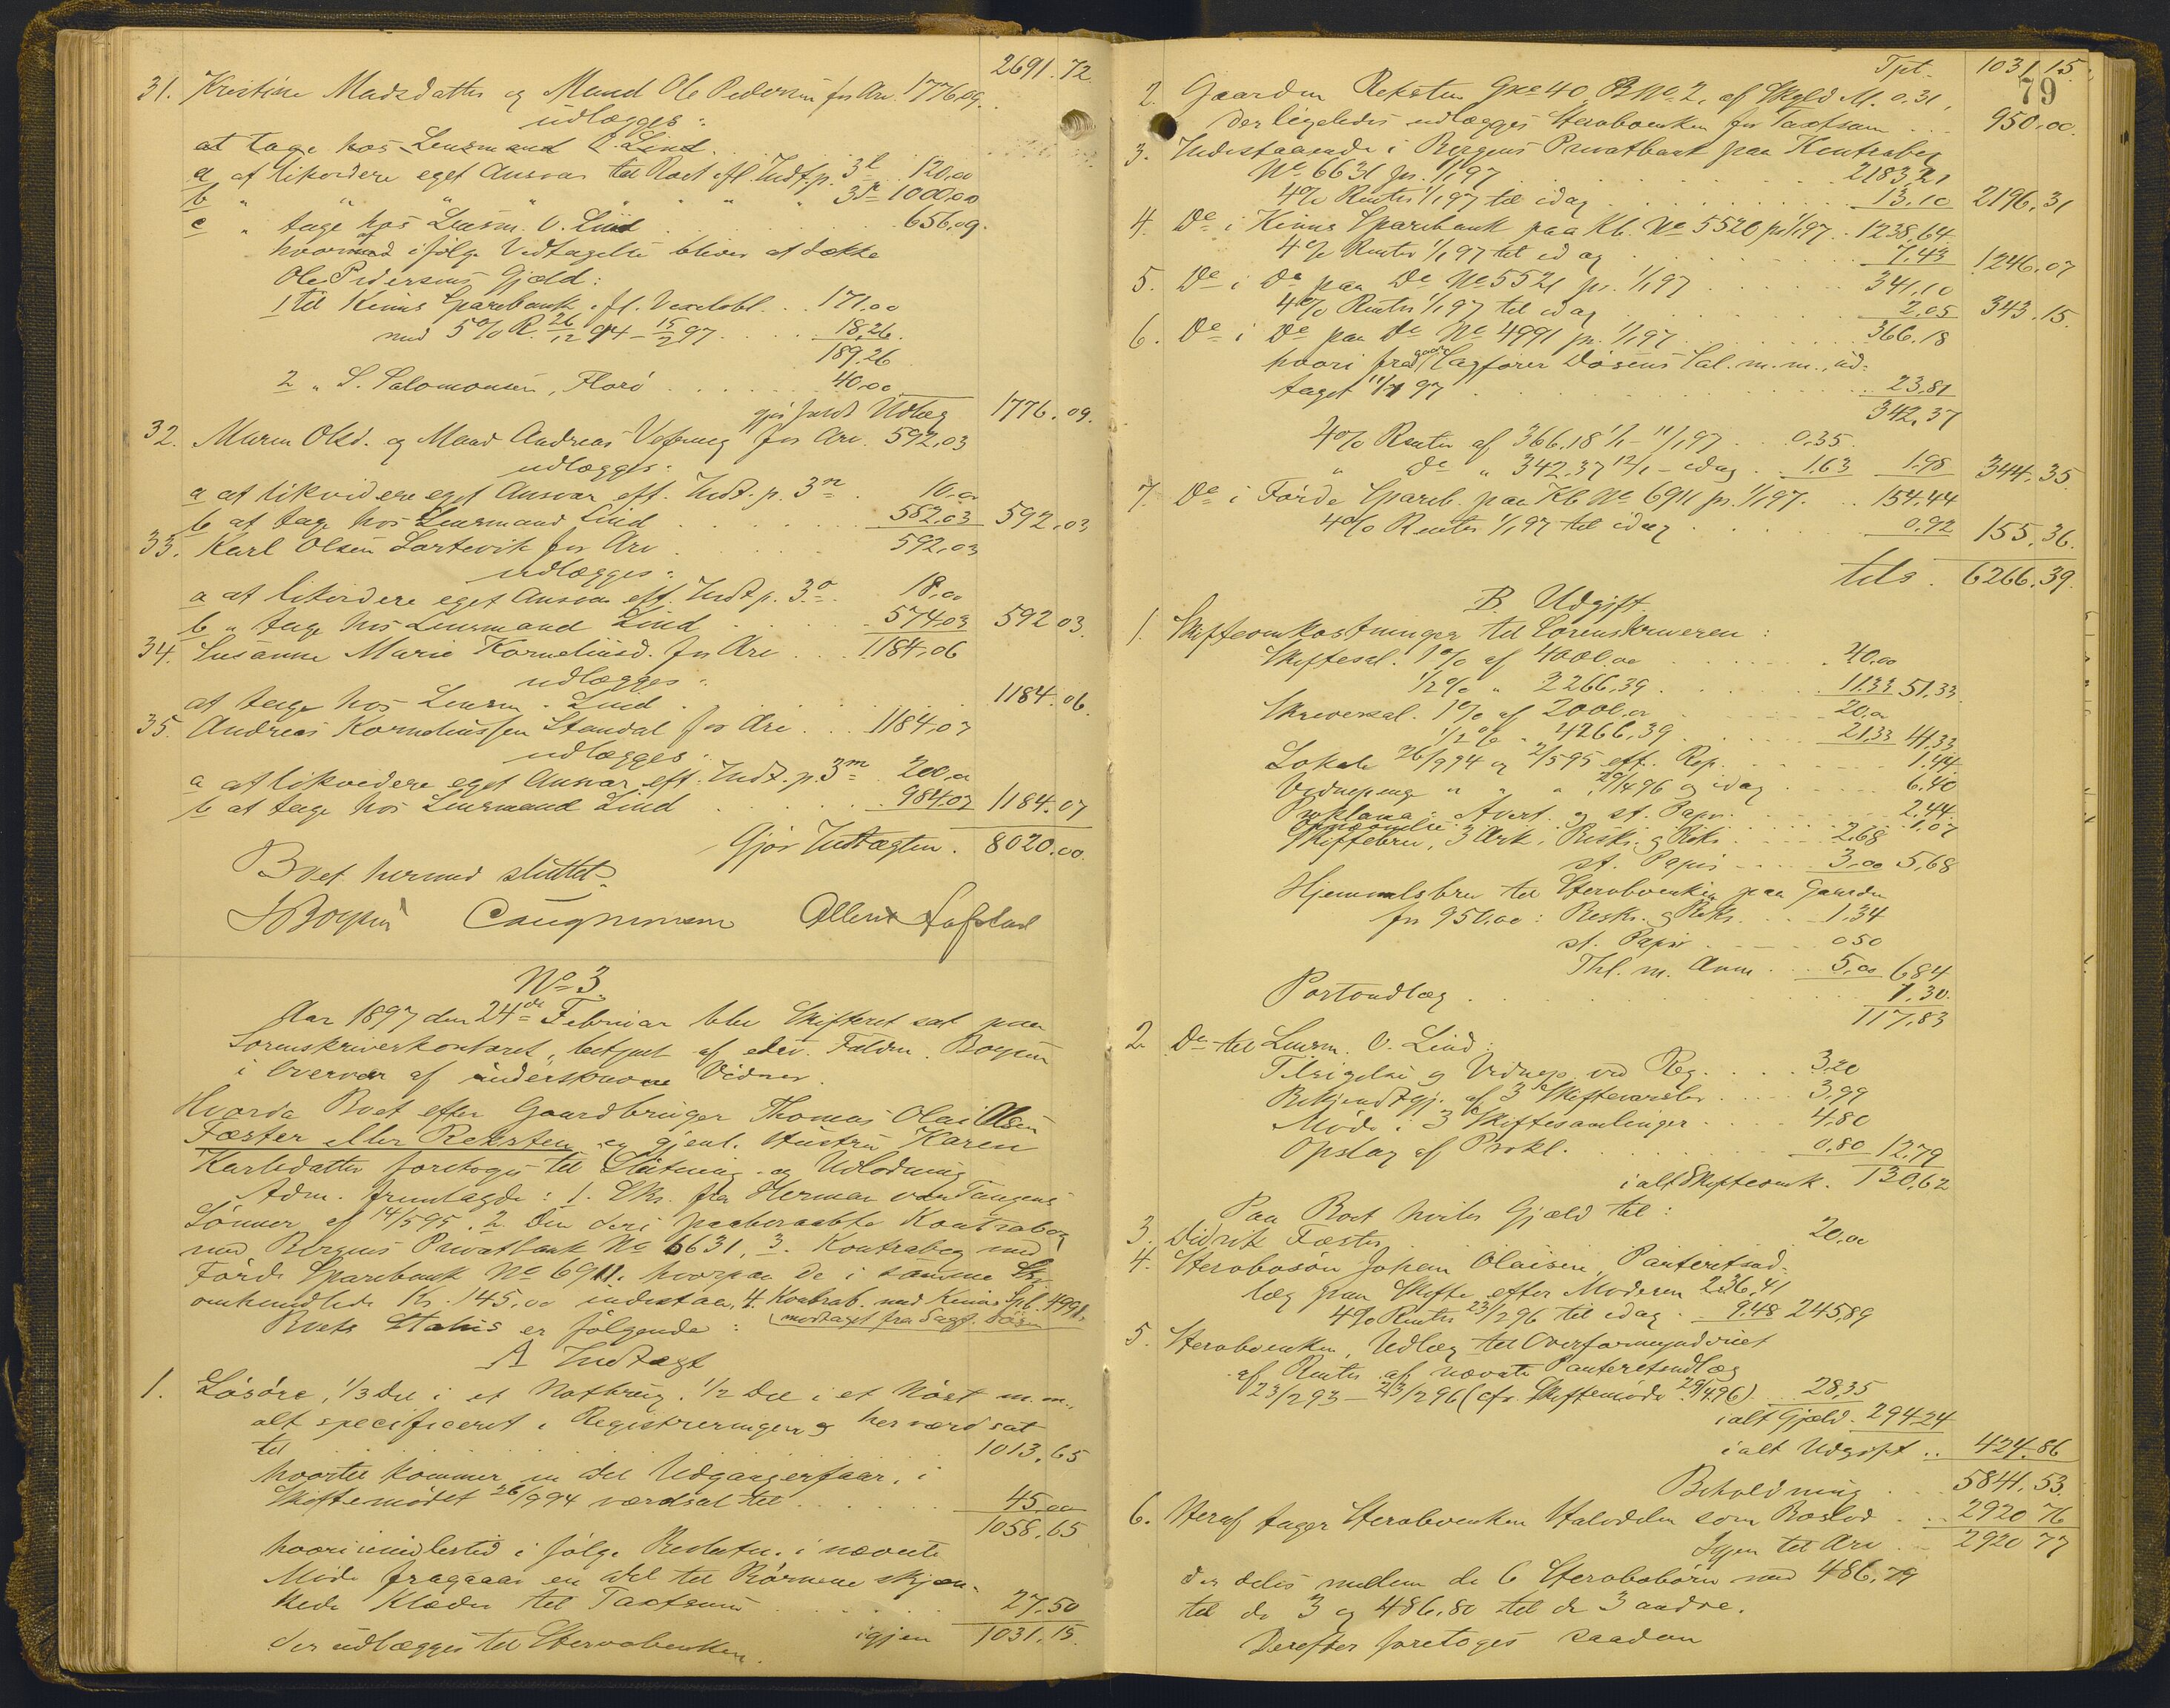 2691.72.
31. Kristine Madsdatter og Mand Ole Pedersen for Arv. 1776,09.
udlægges:
at tage hos Lensmand O. Lind
a at likvidere eget Ansvar til Boet efl. Indt. p. 3 l 120,00
b " " " " " " 3 k 1000,00
c " tage hos Lensm. O. Lind 656,09.
hvoraf ifølge Vedtagelse bliver at dække
Ole Pedersens Gjæld:
1 til Kinns Sparebank efl. Vexelobl. 171,00
med 5% R. 26/12 94 – 15/2 97 18,26.
189,26
2 " S. Salomonsen, Florø 40,00
gjør fuldt Udlæg 1776.09.
32. Maren Olsd. og Mand Andreas Vefring for Arv. 592,03
udlægges:
a at likvidere eget Ansvar eft. Indt. p. 3 n 10,00
b at tage hos Lensmand Lind 582,03 592,03
33. Karl Olsen Sortevik for Arv 592,03
udlægges:
a at likvidere eget Ansvar eft. Indt. p. 3 o 18,00
b " tage hos Lensmand Lind 574,03 592 03.
34. Susanne Marie Korneliusd. for Arv 1184,06
udlægges:
at tage hos Lensm. Lind 1184.06.
35. Andreas Korneliussen Standal for Arv 1184,07
udlægges:
a at likvidere eget Ansvar eft. Indt. p. 3 m 200,00
b at tage hos Lensmand Lind 984,07 1184.07
Gjør Indtægten. 8020.00.
Boet hermed sluttet.
No 3.
Aar 1897 den 24de Februar blev Skifteret sat paa
Sorenskriverkontoret, betjent af edsv. Fuldm. Boyum
i Overvær af underskrevne Vidner.
Hvorda Boet efter Gaardbruger Thomas Olai Olsen
Fæster eller Reksten og gjenl. Hustru Karen
Karlsdatter foretoges til Slutning og Udlodning
Adm. fremlagde: 1. Skr. fra Herman von Tangens
Sønner af 14/5 95. 2. Den deri paaberaabte Kontrabog
med Bergens Privatbank No 6631, 3. Kontrabog med
Førde Sparebank No 6911, hvorpaa de i samme Skr.
omhandlede Kr. 145,00 indestaar, 4. Kontrab. med Kinns Spb. 4991,
modtaget fra Sagf. Døsen
Boets Status er følgende:
A Indtægt
1. Løsøre, 1/3 Del i et Notbrug, 1/2 Del i et Nøst m.m.,
alt specificeret i Registreringen og her værdsat
til 1013,65
hvortil kommer en Del Udgangerfaar, i
Skiftemødet 26/9 94 værdsat til 45,00
1058,65
hvori imidlertid i følge Beslutn. i nævnte
Møde fragaar en Del til Børnene skjæn-
kede Klæder til Taxtsum 27,50
igjen 1031,15.
der udlægges til Stervboenken.
79
Tpt. 1031 15.
2. Gaarden Reksten Gno 40, Bno 2, af Skyld M. 0,31,
der ligeledes udlægges Stervboenken for Taxtsum 950,00.
3. Indestaaende i Bergens Privatbank paa Kontrabog
No 6631 pr. 1/1 97 2183,21
4% Renter 1/1 97 til idag 13,10 2196,31
4. Do i Kinns Sparebank paa Kb. No 5520 pr 1/1 97 1238,64
4% Renter 1/1 97 til idag 7,43 1246,07
5. Do i Do paa Do No 5521 pr. 1/1 97 341,10
4% Renter 1/1 97 til idag 2,05 343.15.
6. Do i Do paa Do No 4991 pr. 1/1 97 366.18
hvori fragaar Sagfører Døsens Sal. m.m., ud-
taget 11/1 97 23,81
342,37
4% Renter af 366.18 1/1 – 11/1 97 0,35
" Do " 342,37 12/1 – idag 1,63 1,98 344.35.
7. Do i Førde Spareb. paa Kb No 6911 pr. 1/1 97 154,44
4% Renter 1/1 97 til idag 0,92 155,36.
tils. 6266.39.
B. Udgift
1. Skifteomkostninger til Sorenskriveren:
Skiftesal. 1% af 4000,00 40,00
1/2% " 2266,39 11,33 51,33
Skriversal. 1% af 2000,00 20,00
1/2% " 4266,39 21,33 41,33
Lokale 26/9 94 og 2/5 95 eft. Rep. 1,44
Vidnepenge " " " 29/4 96 og idag 6,40
Proklama: Avert. og st. Papir 2,44.
1,07
Skiftebrev, 3 Ark. Beskr. og Reks. 2,68
st. Papir 3,00 5,68
Hjemmelsbrev til Stervboenken paa Gaarden
for 950,00: Beskr. og Reks. 1,34
st. Papir 0 50
Thl. m. Anm. 5,00 6,84
Portoudlæg 1,30.
117,83
2. Do til Lensm. O. Lind:
Tilsigelse og Vidnep. ved Reg. 3,20
Bekjendtgj. af 3 Skiftevarsler 3,99
Møde i 3 Skiftesamlinger 4,80
Opslag af Prokl. 0,80 12,79
ialt Skifteomk. 130,62
Paa Boet hviler Gjæld til:
3. Didrik Fæster 20,00
4. Stervbosøn Johan Olaisen, Panteretsud-
læg paa Skifte efter Moderen 236,41
4% Renter 23/2 96 til idag 9,48 245,89
5. Stervboenken, Udlæg til Overformynderiet
af Renter af nævnte Panteretsudlæg
23/2 93 – 23/2 96 (cfr. Skiftemøde 29/4 96) 28,35
ialt Gjæld. 294,24
ialt Udgift 424.86
Beholdning 5841.53.
6. Heraf tager Stervboenken Halvdelen som Boslod 2920 76
Igjen til Arv 2920 77
der deles mellem de 6 Stervbobørn med 486,79
til de 3 og 486,80 til de 3 andre.
Derefter foretoges saadan